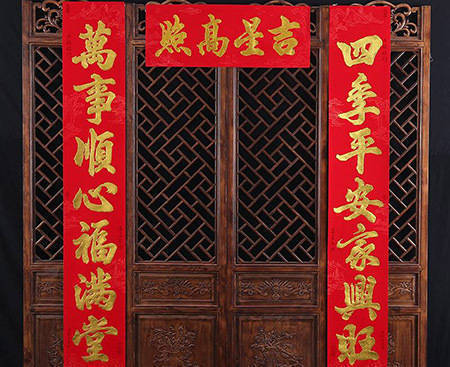 四季平安家興旺
萬事順心福滿堂
吉星高照